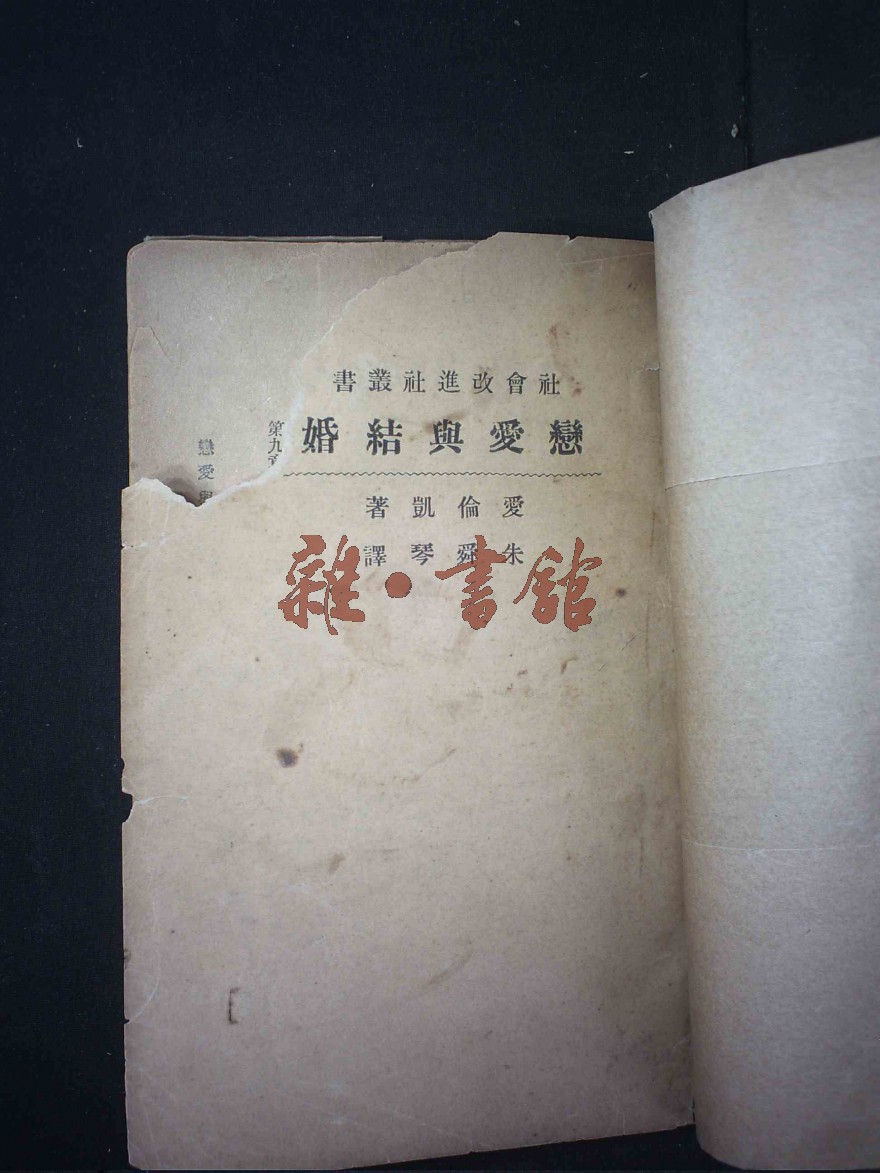 社會改進社叢書
戀愛與結婚
愛倫凱著
朱舜琴譯
第九章
戀愛與
雜·書館